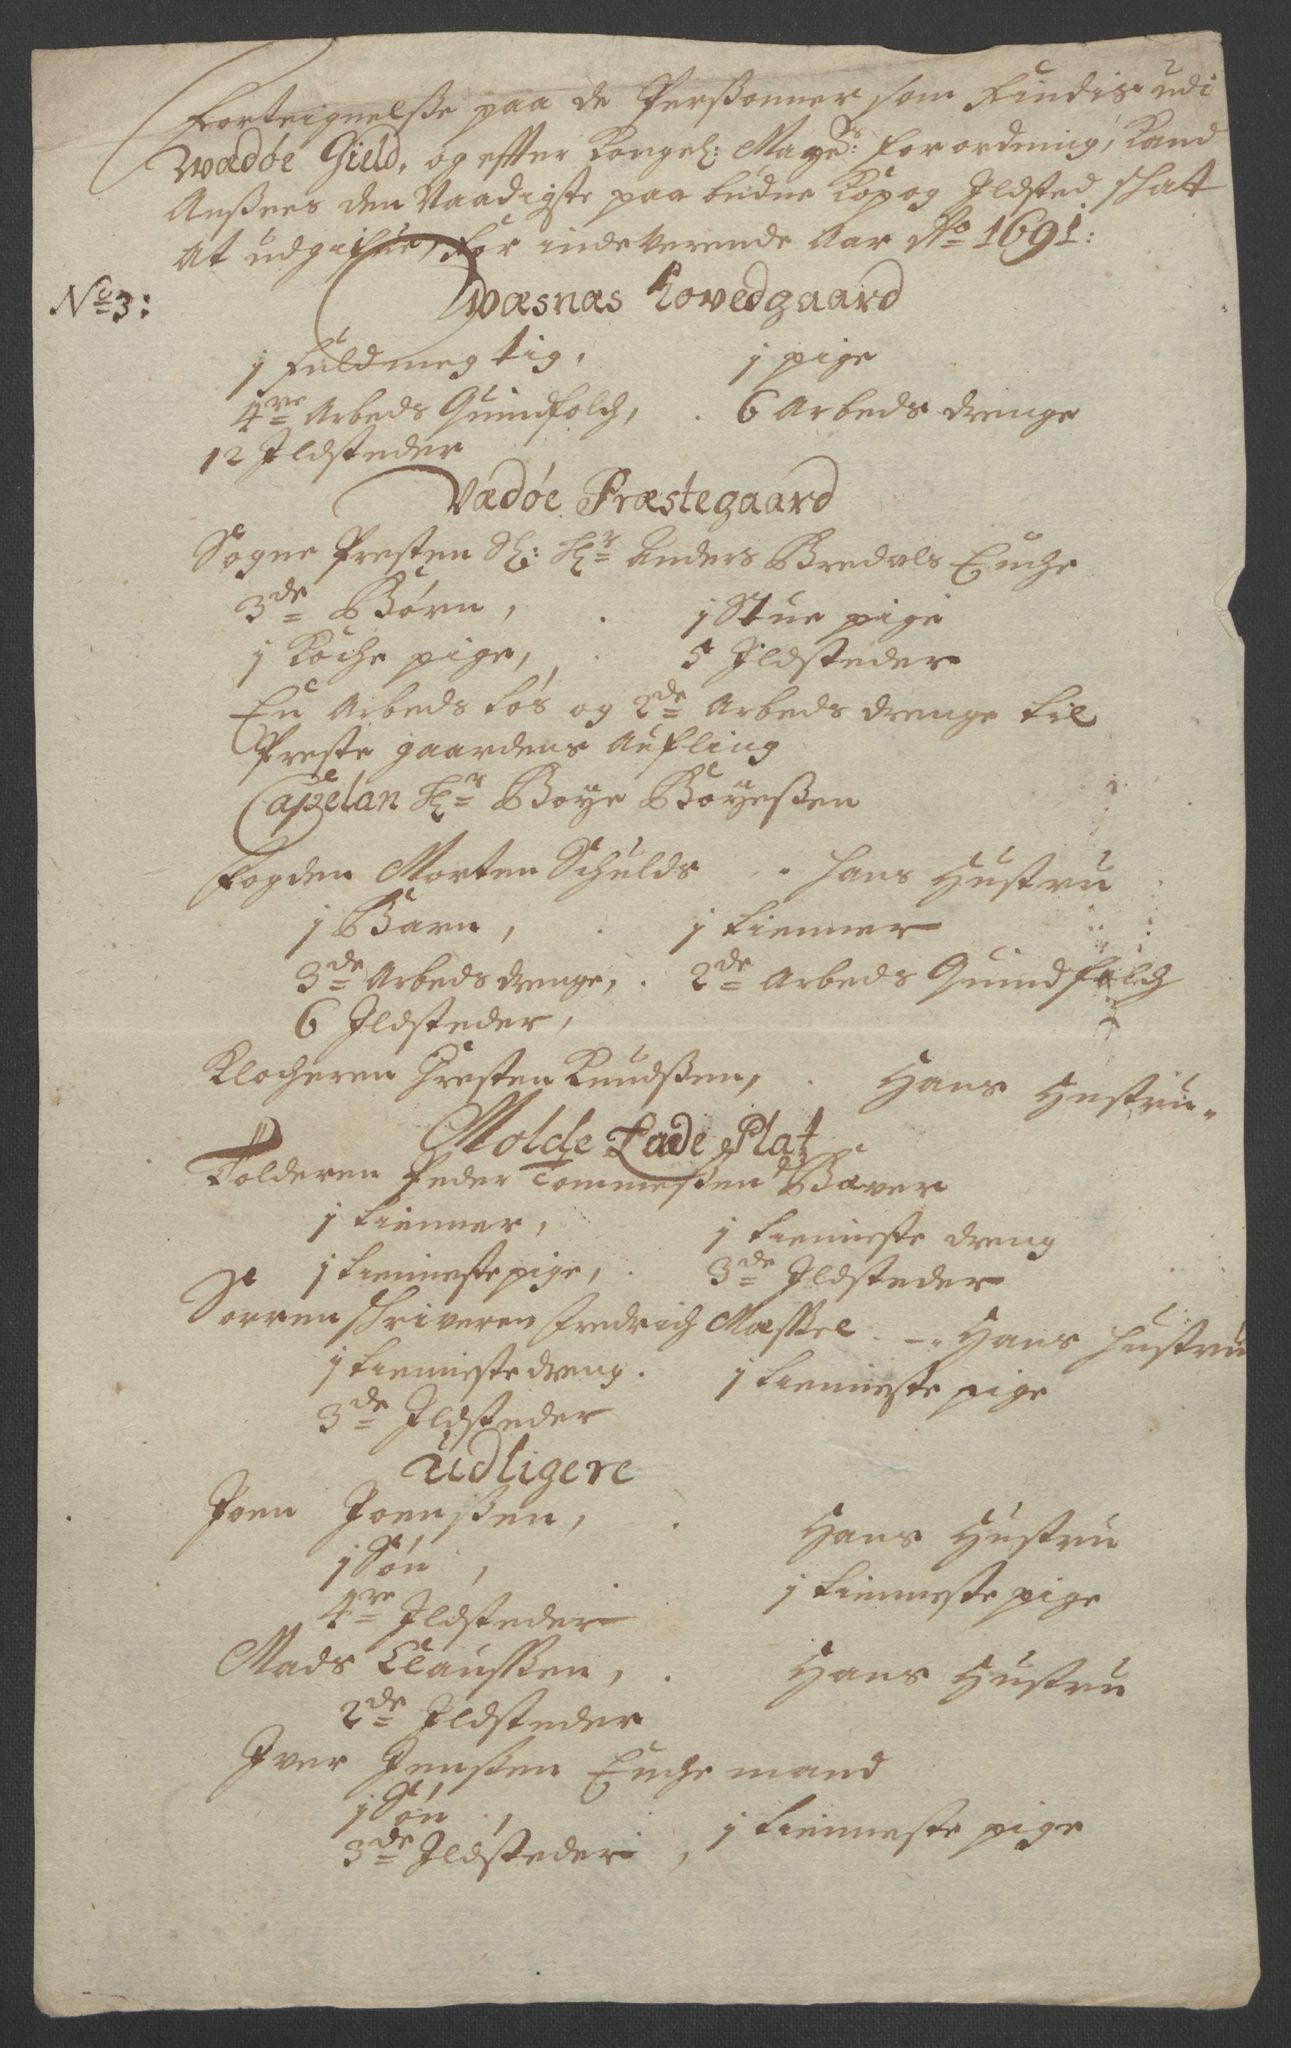 Forteignelsse paa de Perssonner som Findis udi
Wædøe Gield, og effter Kongel: Mayeds: forordning, Kand
Anssees den Naadigste paa budne Kop og Ildsted schatt
At udgifue, for indeværende Aar No 1691:
No 3:
Wæsnæs Hovedgaard
1 fuldmegtig, 1 pige
4re Arbeds Quindfolch, 6 Arbeds drenge
12 Ildsteder
Vædøe Præstegaard
Sogne Presten Sl: Hr Anders Bredals Enche
3de Børn, 1 Stue pige
1 Koche pige, 5 Ildsteder
En Arbeds Løs og 2de Arbeds drenge til
Preste gaardens Aufling
Capelan Hr Boye Boyessen
Fogden Morten Schulds hans Hustru
1 Barn, 1 tienner
3de Arbeds drenge, 2de Arbeds Quindfolch
6 Ildsteder,
Klocheren Chresten Knudssen, Hans Hustru
Molde Lade Platz
Tolderen Peder Tommessen Bæver
1 tienner, 1 tienneste dreng
1 tienneste pige, 3de Ildsteder
Sorrenschriveren Fredrich Mæssel Hans Hustru
1 tienneste dreng. 1 tienneste pige
3de Ildsteder
Udligere
Joen Joenssen, Hans Hustru
1 Søn, 1 tienneste pige
4re Ildsteder
Mads Claussen, Hans Hustru
2de Ildsteder
Iver Jenssen Enche mand
1 Søn, 1 tienneste pige
3de Ildsteder,